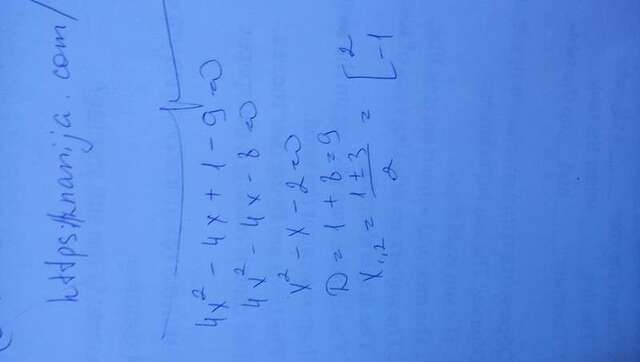 https://znanija.com/
4x² - 4x + 1 - 9 = 0
4x² - 4x - 8 = 0
x² - x - 2 = 0
D = 1 + 8 = 9
x₁,₂ = (1 ± 3)/2 = [2
-1